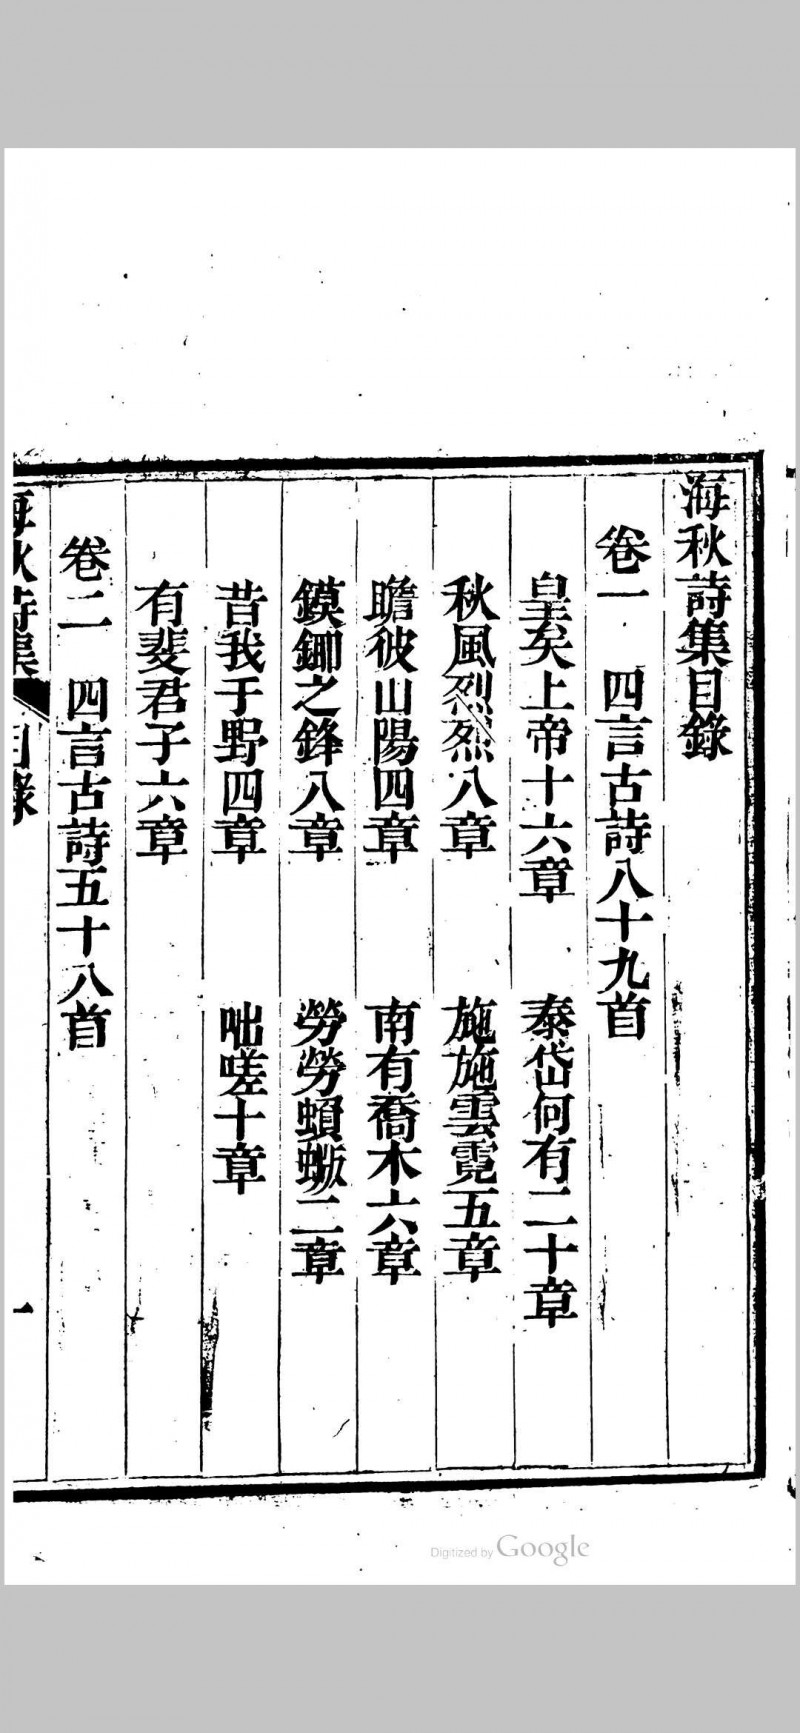 海秋詩集目錄
卷一　四言古詩八十九首
皇矣上帝十六章　泰岱何有二十章
秋風烈烈八章　施施雲霓五章
瞻彼山陽四章　南有喬木六章
鏌鎁之鋒八章　勞勞蝜蝂二章
昔我于野四章　咄嗟十章
有斐君子六章
卷二　四言古詩五十八首
海秋詩集　目錄　一
Digitized by Google